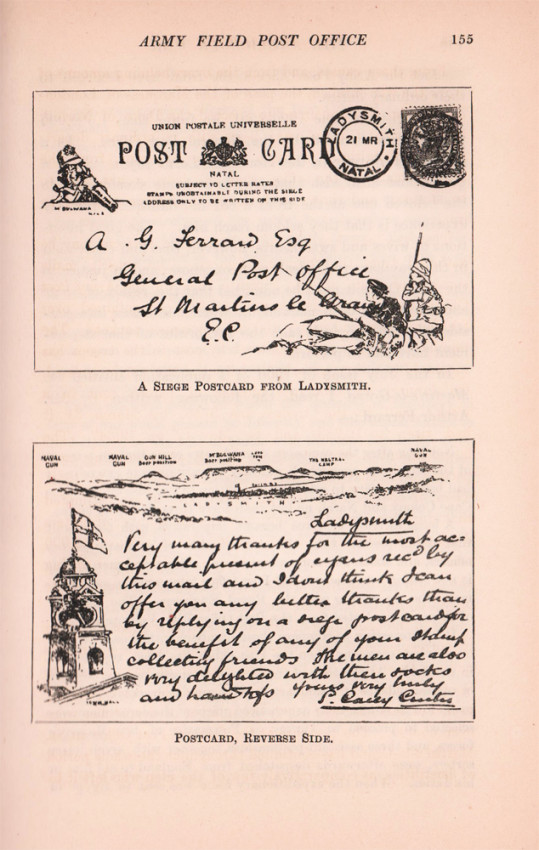 ARMY FIELD POST OFFICE 155
UNION POSTALE UNIVERSELLE
POST CARD
LADYSMITH
21 MR
NATAL
NATAL
SUBJECT TO LETTER RATES
STAMPS UNOBTAINABLE DURING THE SIEGE
ADDRESS ONLY TO BE WRITTEN ON THIS SIDE
Mt BULWANA
HILL
A. G. Ferrard Esq
General Post Office
St Martins le Grand
E.C
A Siege Postcard from Ladysmith.
NAVAL GUN
NAVAL GUN
GUN HILL
Boer position
Mt BULWANA
Boer position
THE NEUTRAL CAMP
NAVAL GUN
LADYSMITH
Ladysmith
Very many thanks for the most ac-
ceptable present of cigars recd by
this mail and I dont think I can
offer you any better thanks than
by replying on a siege postcard for
the benefit of any of your stamp
collecting friends The men are also
very delighted with their socks
and yours very truly
Postcard, Reverse Side.